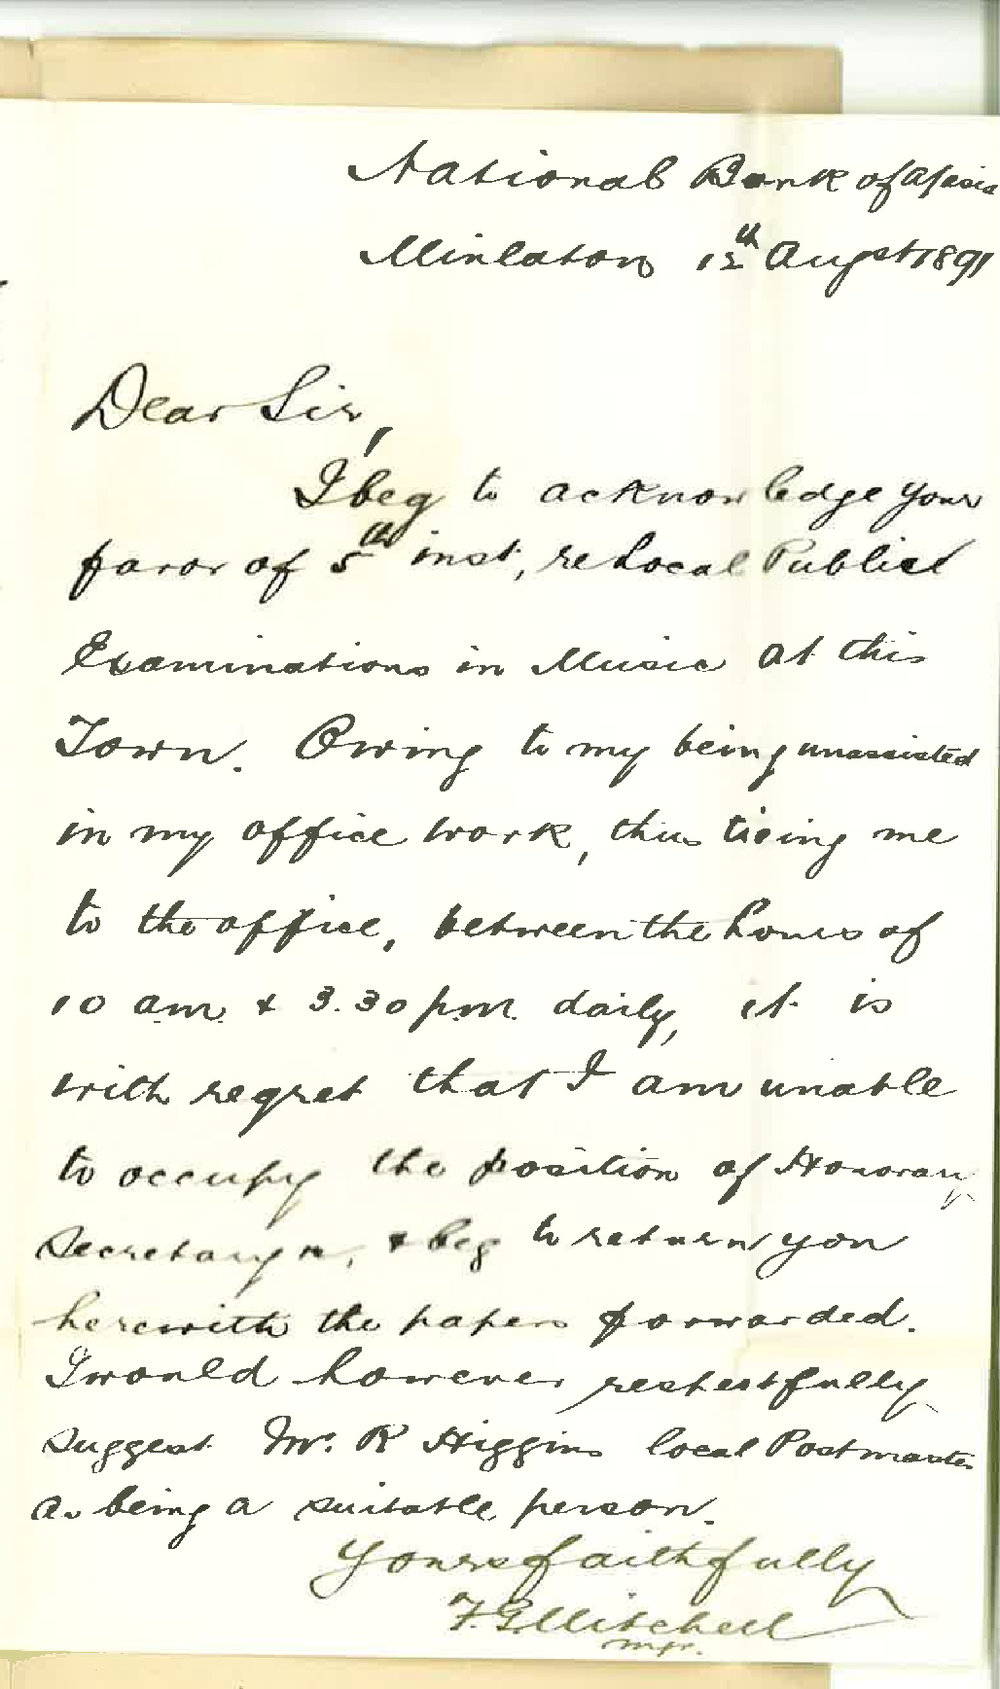 National Bank of A/asia
Minlaton 12th Augst 1891
Dear Sir,
I beg to acknowledge your
favor of 5th inst, re Local Public
Examinations in Music at this
Town. Owing to my being unassisted
in my office work, thus tieing me
to the office, between the hours of
10 a.m. & 3.30 p.m. daily, it is
with regret that I am unable
to occupy the position of Honorary
Secretary, & beg to return you
herewith the papers forwarded.
I would however respectfully
suggest Mr. R Higgins local Postmaster
as being a suitable person.
Yours faithfully
F. G. Mitchell
mgr.